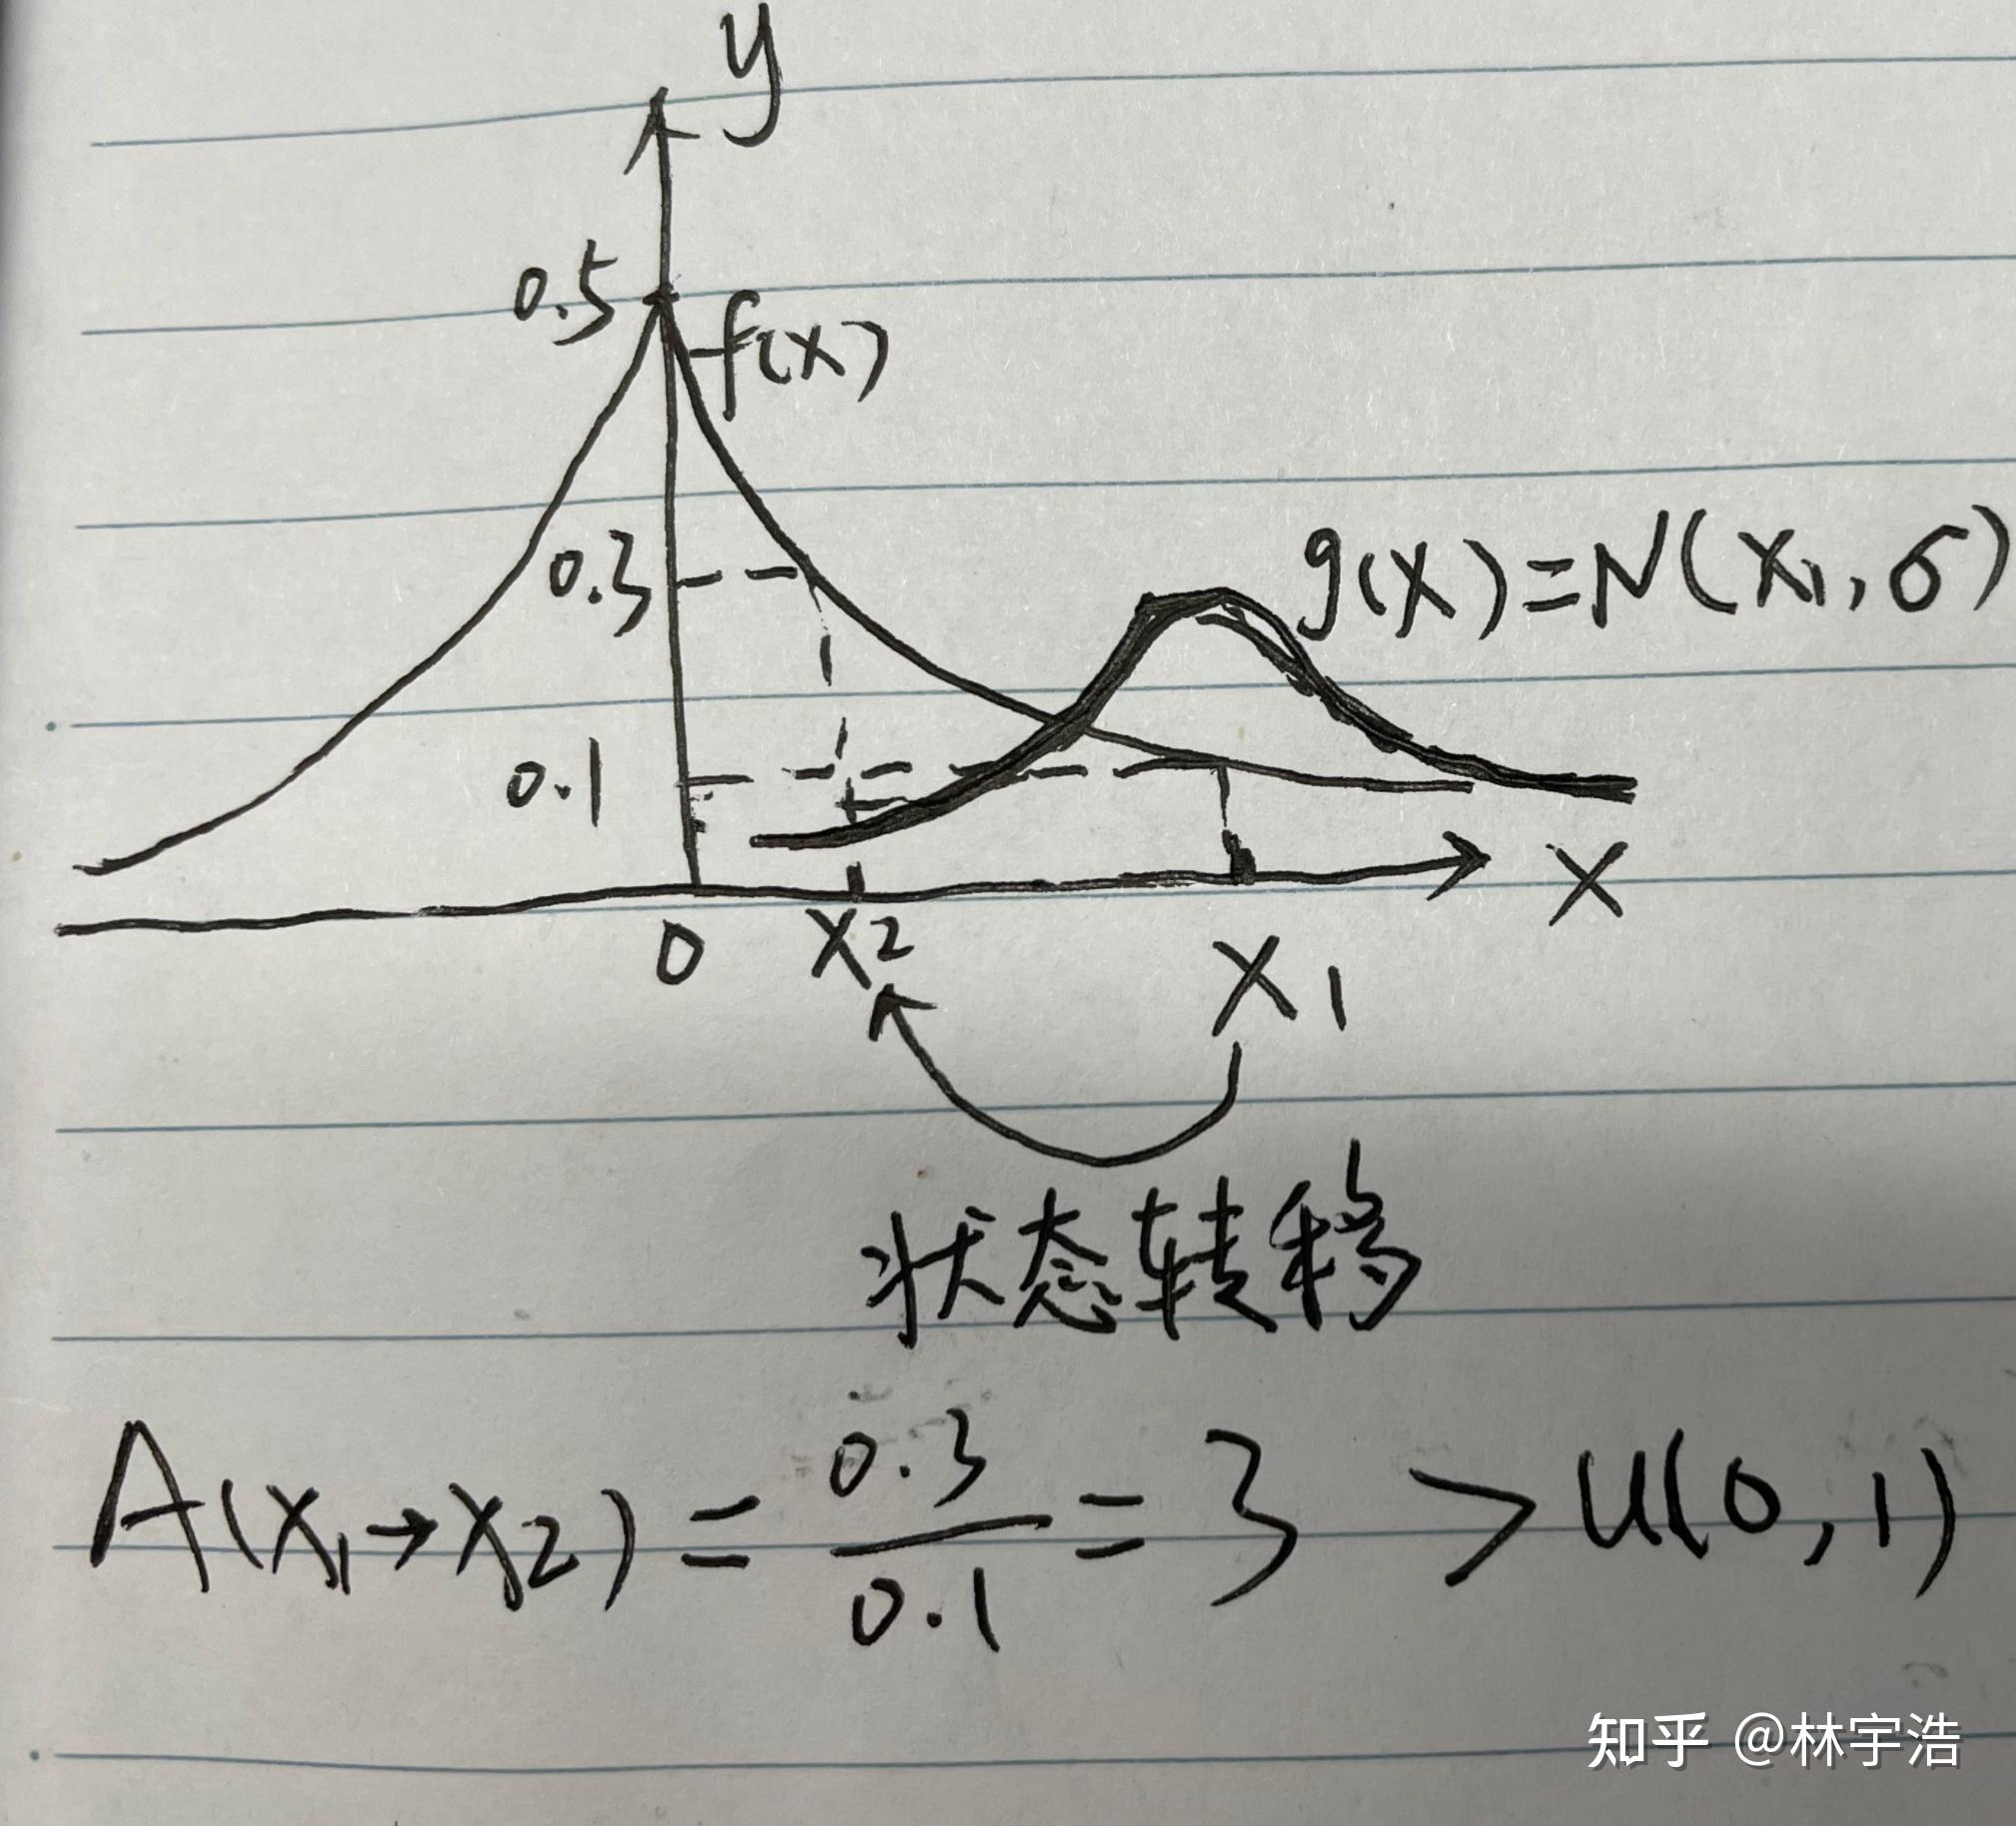 y
0.5
f(x)
0.3
g(x)=N(x₁,σ)
0.1
x
0 x2 x1
状态转移
A(x₁→x₂) = 0.3/0.1 = 3 > U(0,1)
知乎 @林宇浩